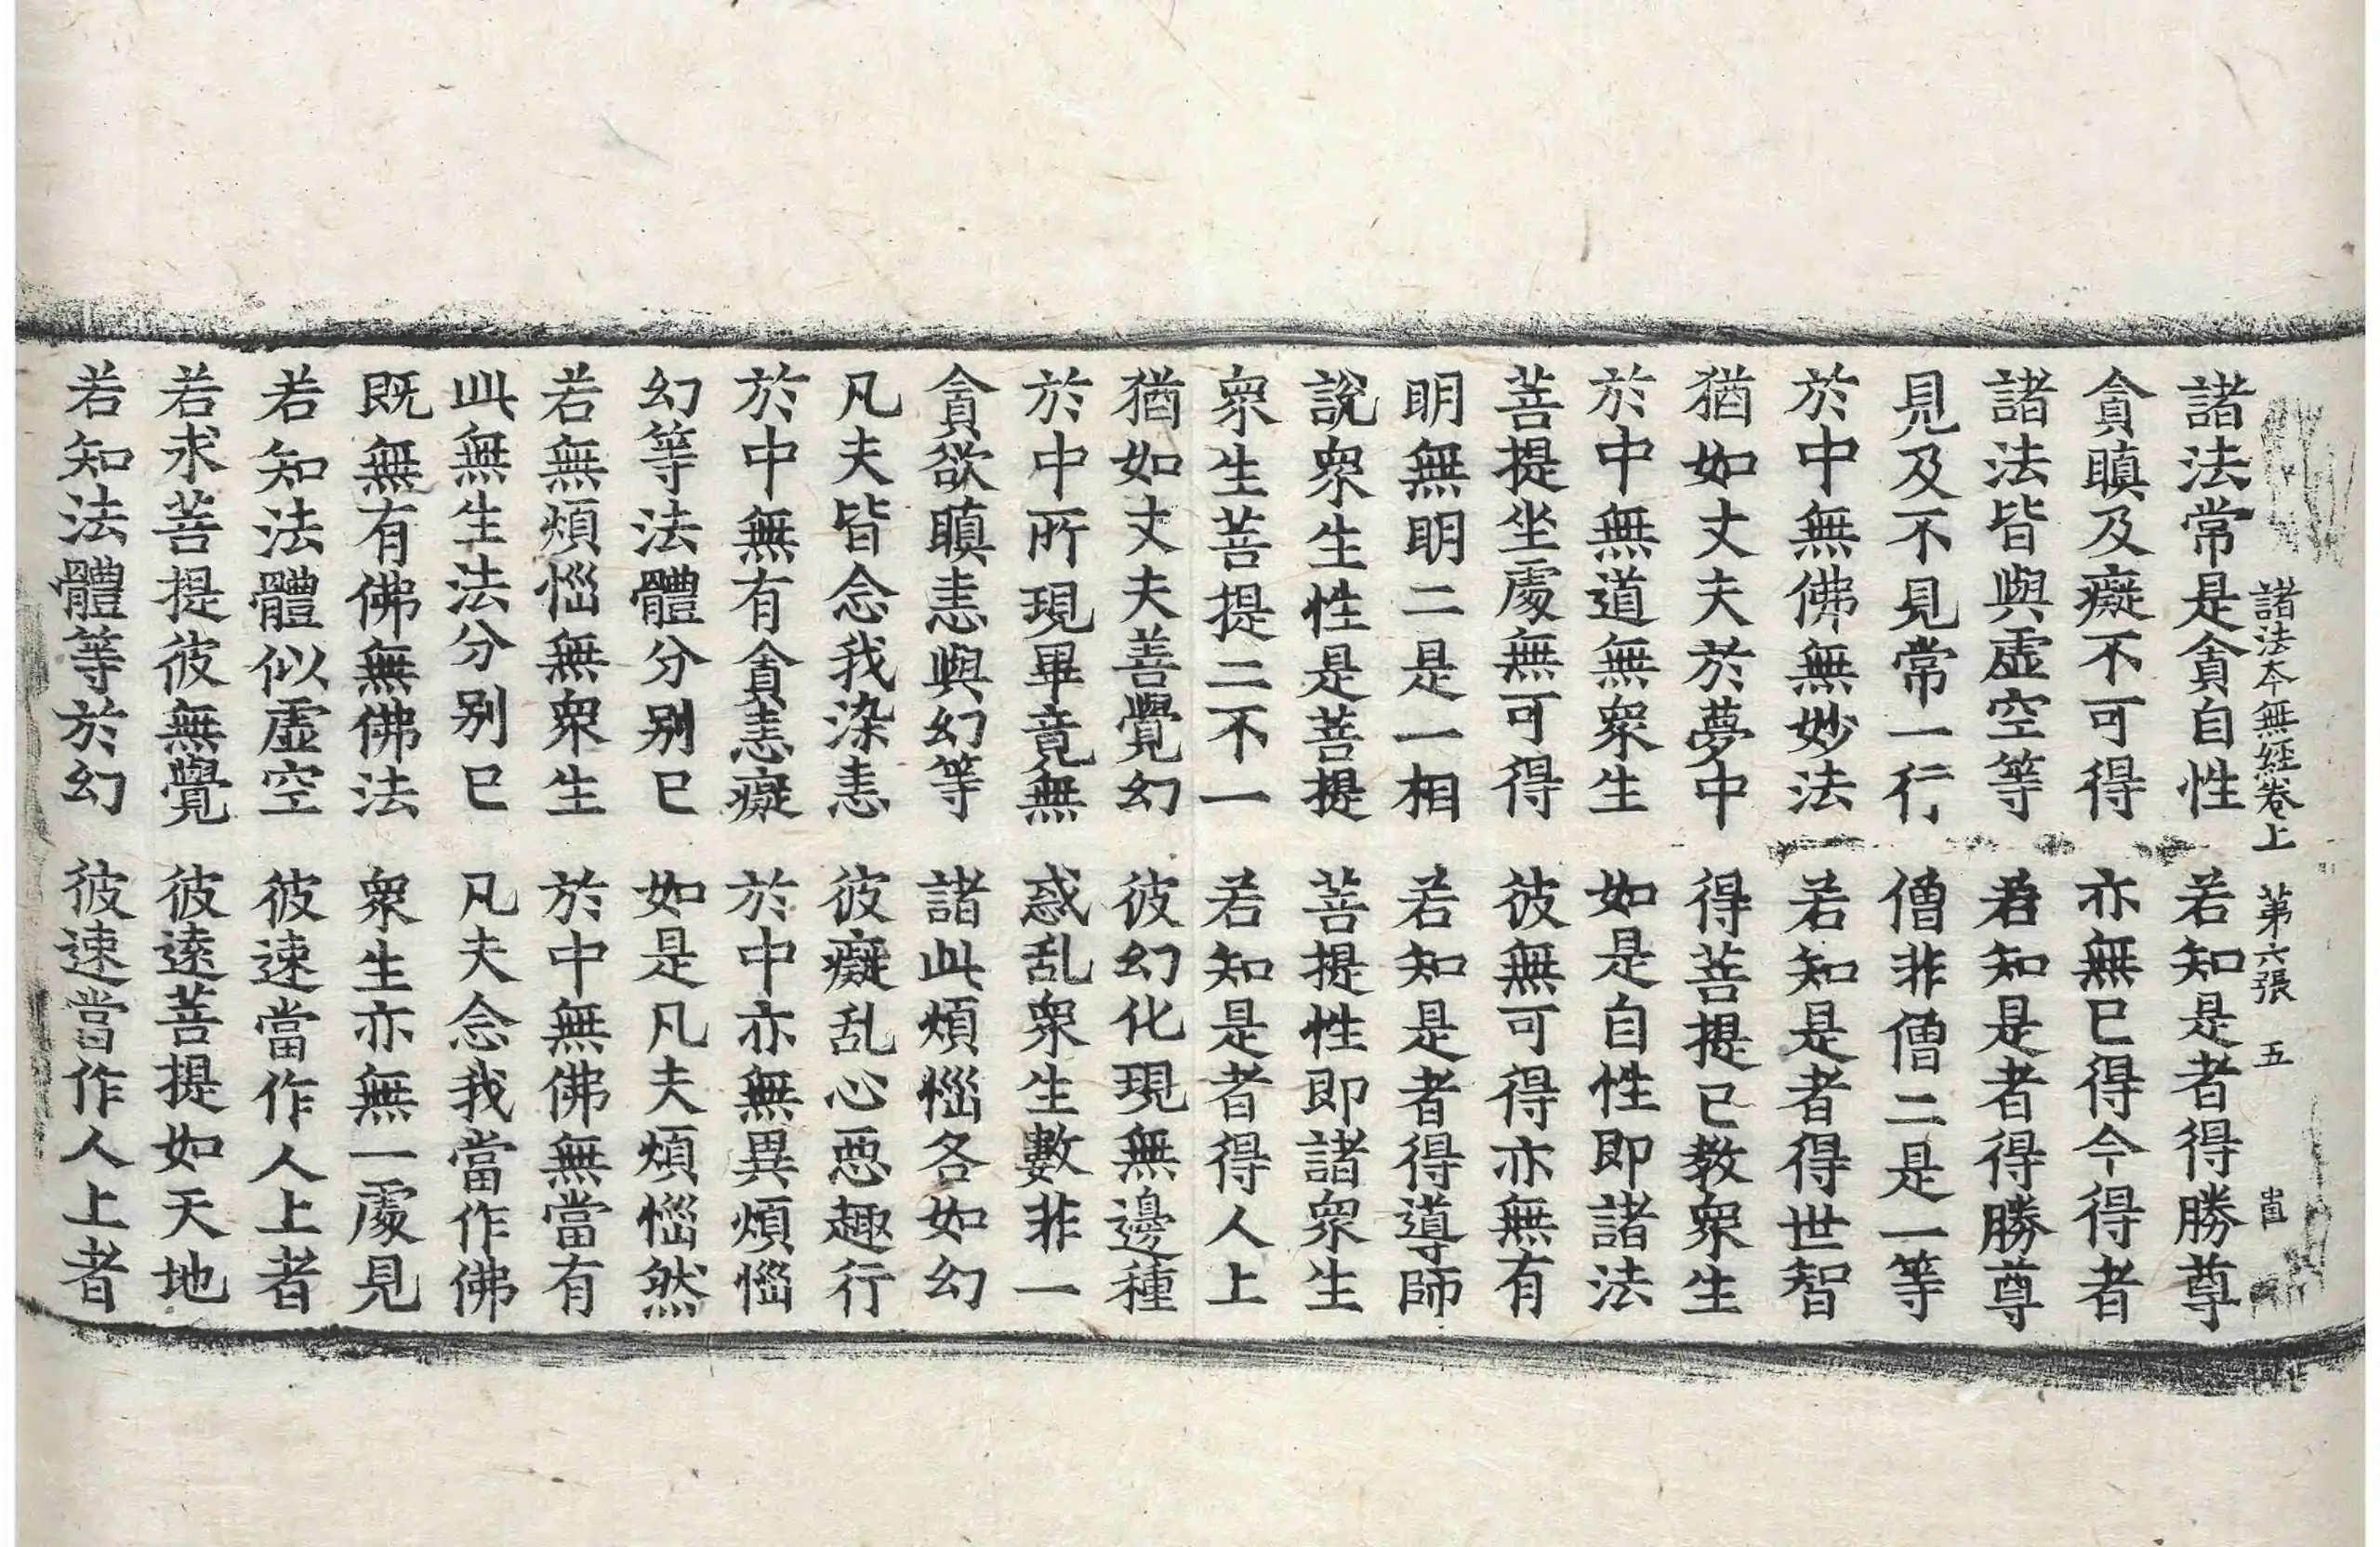 諸法本無経卷上 第六張 五
諸法常是貪自性 若知是者得勝尊
貪瞋及癡不可得 亦無已得今得者
諸法皆與虛空等 若知是者得勝尊
見及不見常一行 僧非僧二是一等
於中無佛無妙法 若知是者得世智
猶如丈夫於夢中 得菩提已教衆生
於中無道無衆生 如是自性即諸法
菩提坐處無可得 彼無可得亦無有
明無明二是一相 若知是者得導師
說衆生性是菩提 菩提性即諸衆生
衆生菩提二不一 若知是者得人上
猶如丈夫善覺幻 彼幻化現無邊種
於中所現畢竟無 惑乱衆生數非一
貪欲瞋恚與幻等 諸此煩惱各如幻
凡夫皆念我染恚 彼癡乱心惡趣行
於中無有貪恚癡 於中亦無異煩惱
幻等法體分别已 如是凡夫煩惱然
若無煩惱無衆生 於中無佛無當有
此無生法分别已 凡夫念我當作佛
既無有佛無佛法 衆生亦無一處見
若知法體似虛空 彼速當作人上者
若求菩提彼無覺 彼遠菩提如天地
若知法體等於幻 彼速當作人上者